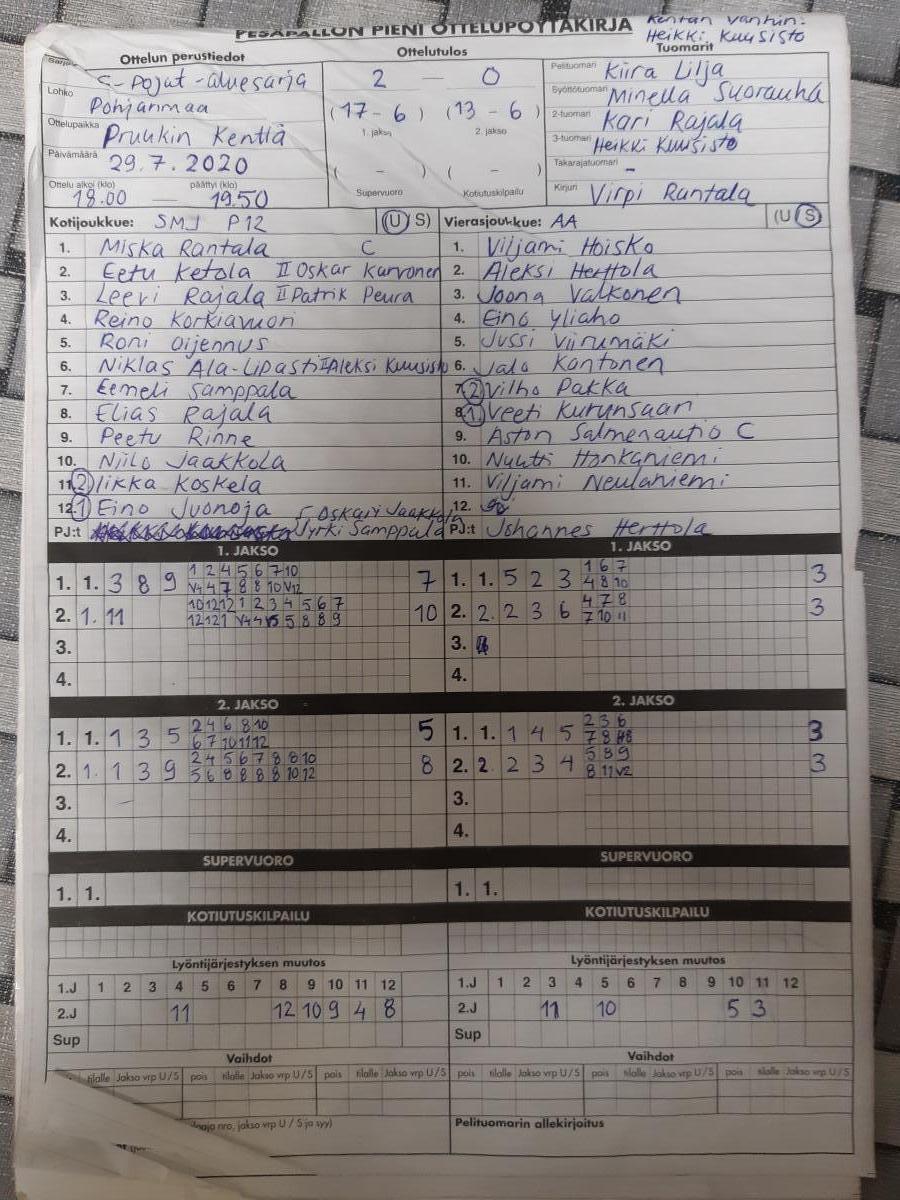 PESÄPALLON PIENI OTTELUPÖYTÄKIRJA
Kentän vanhin:
Heikki Kuusisto
Ottelun perustiedot Ottelutulos Tuomarit
C-Pojat-aluesarja
Lohko Pohjanmaa
Ottelupaikka Pruukin Kenttä
Päivämäärä 29.7.2020
Ottelu alkoi (klo) päättyi (klo)
18.00 — 19.50
2 — 0
(17 - 6) (13 - 6)
1. jakso 2. jakso
( - ) ( - )
Supervuoro Kotiutuskilpailu
Pelituomari Kiira Lilja
Syöttötuomari Minella Suorauha
2-tuomari Kari Rajala
3-tuomari Heikki Kuusisto
Takarajatuomari -
Kirjuri Virpi Rantala
Kotijoukkue: SMJ P12 (U S)
1. Miska Rantala C
2. Eetu Ketola II Oskar Karvonen
3. Leevi Rajala II Patrik Peura
4. Reino Korkiavuori
5. Roni Oijennus
6. Niklas Ala-Lipasti II Aleksi Kuusisto
7. Eemeli Samppala
8. Elias Rajala
9. Peetu Rinne
10. Niilo Jaakkola
11. 2 Iikka Koskela
12. 1 Eino Juonoja
Oskari Jaakkola
PJ:t Jyrki Samppala
Vierasjoukkue: AA (U S)
1. Viljami Hoisko
2. Aleksi Herttola
3. Joona Valkonen
4. Eino Yliaho
5. Jussi Viirumäki
6. Jalo Kontonen
7. 2 Vilho Pakka
8. 1 Veeti Kurunsaari
9. Aston Salmenautio C
10. Nuutti Honkaniemi
11. Viljami Neulaniemi
12.
PJ:t Johannes Herttola
1. JAKSO
1. 1. 3 8 9 1 2 4 5 6 7 10 7
V4 4 7 8 8 10 V12
2. 1. 11 10 12 12 1 2 3 4 5 6 7 10
12 12 1 V4 4 V5 5 8 8 9
3.
4.
1. JAKSO
1. 1. 5 2 3 1 6 7 3
4 8 10
2. 2. 2 3 6 4 7 8 3
7 10 11
3.
4.
2. JAKSO
1. 1. 1 3 5 2 4 6 8 10 5
6 7 10 11 12
2. 1. 1 3 9 2 4 5 6 7 8 8 10 8
5 6 8 8 8 8 10 12
3.
4.
2. JAKSO
1. 1. 1 4 5 2 3 6 3
7 8
2. 2. 2 3 4 5 8 9 3
8 11 V2
3.
4.
SUPERVUORO
1. 1.
SUPERVUORO
1. 1.
KOTIUTUSKILPAILU
KOTIUTUSKILPAILU
Lyöntijärjestyksen muutos
1.J 1 2 3 4 5 6 7 8 9 10 11 12
2.J 11 12 10 9 4 8
Sup
Lyöntijärjestyksen muutos
1.J 1 2 3 4 5 6 7 8 9 10 11 12
2.J 11 10 5 3
Sup
Vaihdot
tilalle Jakso vrp U/S pois tilalle Jakso vrp U/S pois tilalle Jakso vrp U/S
Vaihdot
pois tilalle Jakso vrp U/S pois tilalle Jakso vrp U/S pois tilalle Jakso vrp U/S
nro, jakso vrp U / S ja syy)
Pelituomarin allekirjoitus